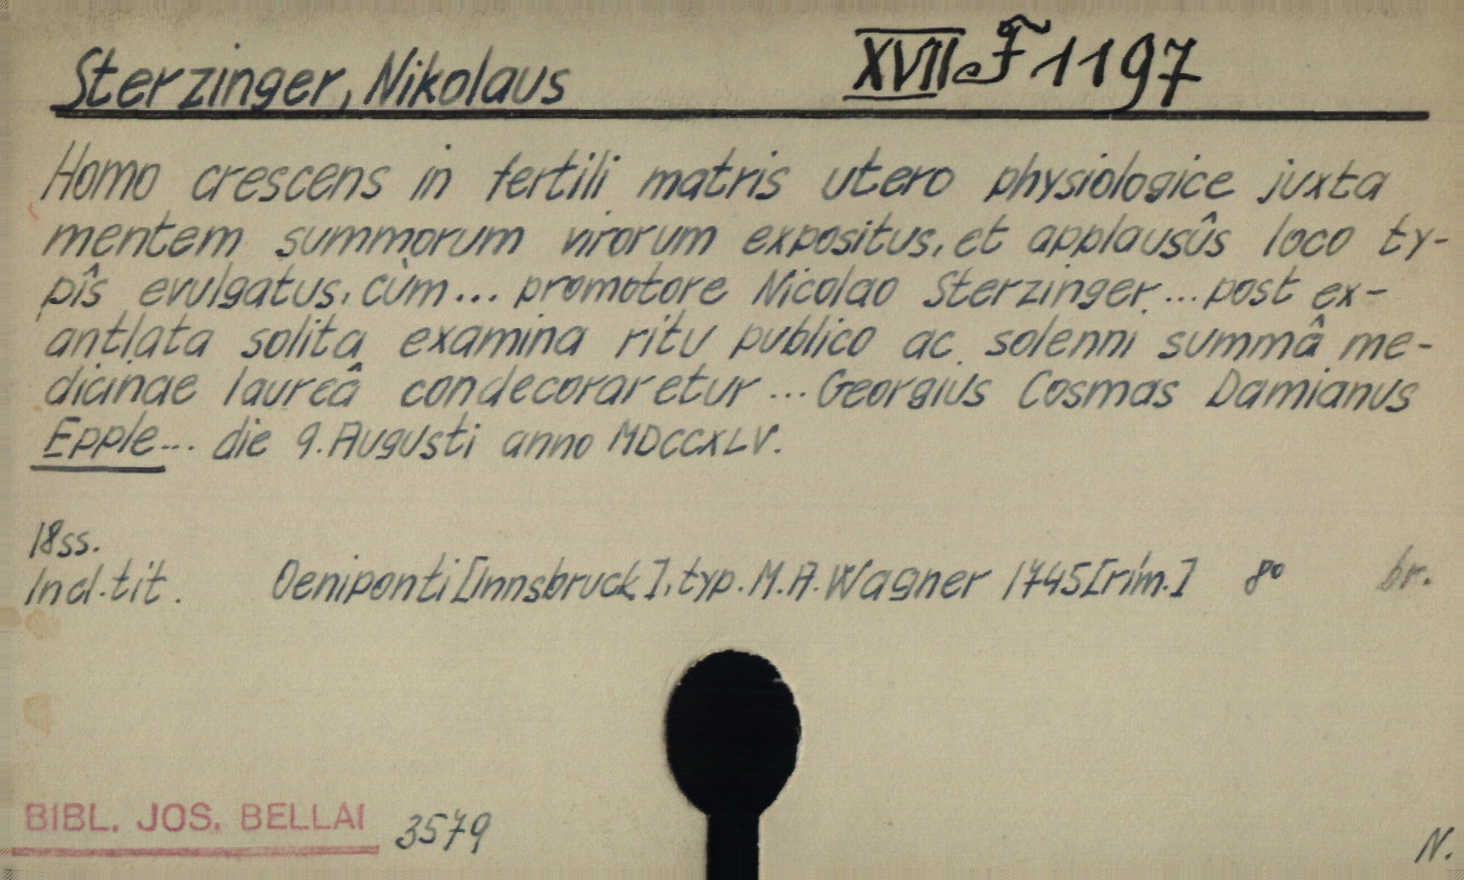 Sterzinger, Nikolaus XVII F 1197
Homo crescens in fertili matris utero physiologice juxta
mentem summorum virorum expositus, et applausûs loco ty-
pîs evulgatus, cùm... promotore Nicolao Sterzinger... post ex-
antlata solita examina ritu publico ac solenni summâ me-
dicinae laureâ condecoraretur ... Georgius Cosmas Damianus
Epple... die 9. Augusti anno MDCCXLV.
18ss.
Incl. tit. Oeniponti [Innsbruck], typ. M. A. Wagner 1745 [rím.] 8° br.
BIBL. JOS. BELLAI 3579
N.